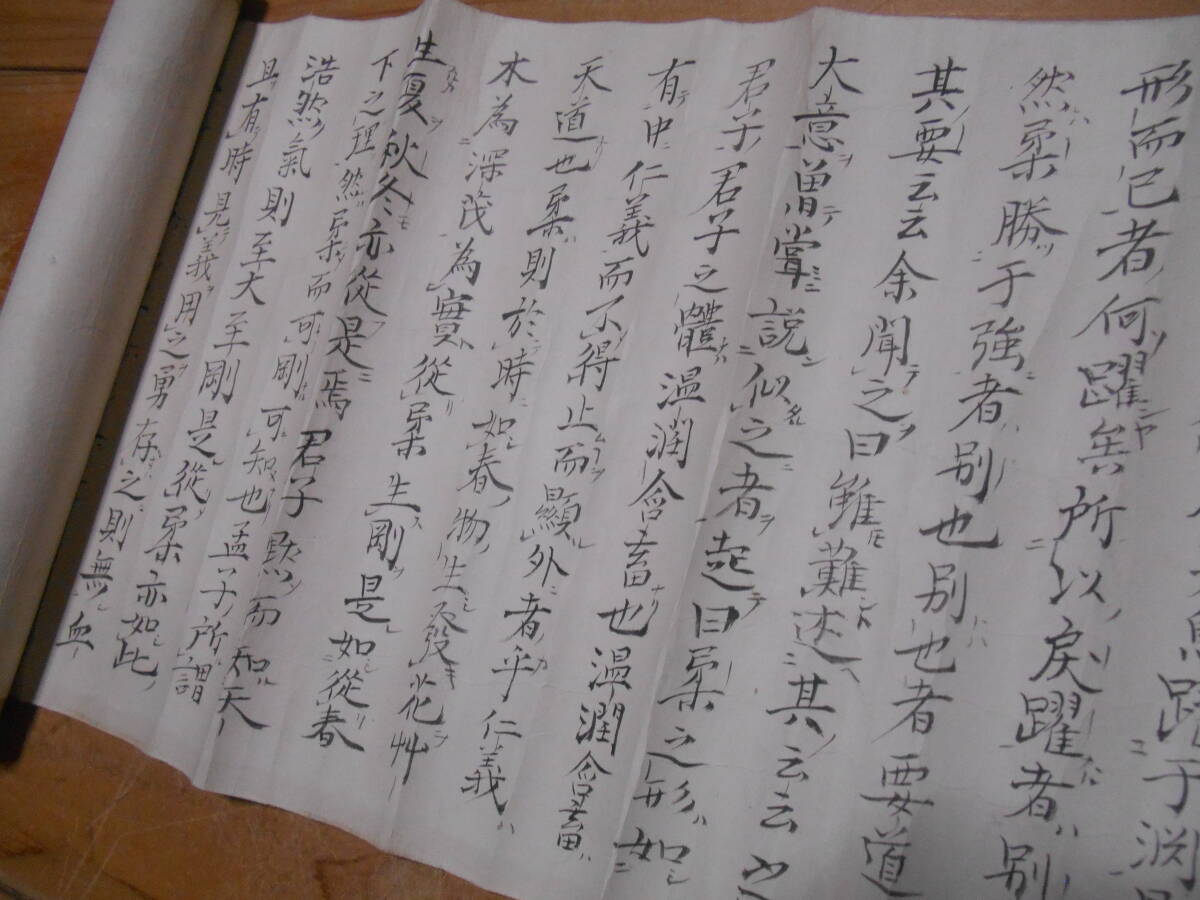 魚躍于淵
形而已者何躍矣所以戾躍者別
然柔勝于強者別也別也者要道
其要云云余聞之曰雖難述其云云之
大意曽嘗説似之者起曰柔之形如
君子君子之體温潤含畜也温潤含畜
有中仁義而不得止而顯外者乎仁義
天道也柔則於時如春物生發花艸
木為深茂為實從柔生剛是如從春
生夏秋冬亦從是焉君子黙而知天
下之理然柔而可剛可知也孟子所謂
浩然氣則至大至剛是從柔亦如此
且有時見義用之勇存之則無血